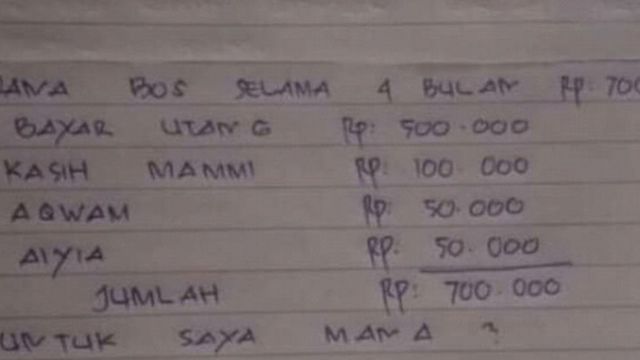 ANA BOS SELAMA 4 BULAN Rp: 700
BAYAR UTANG Rp: 500.000
KASIH MAMMI Rp: 100.000
AQWAM Rp. 50.000
AIYIA Rp. 50.000
JUMLAH Rp: 700.000
UNTUK SAYA MANA ?